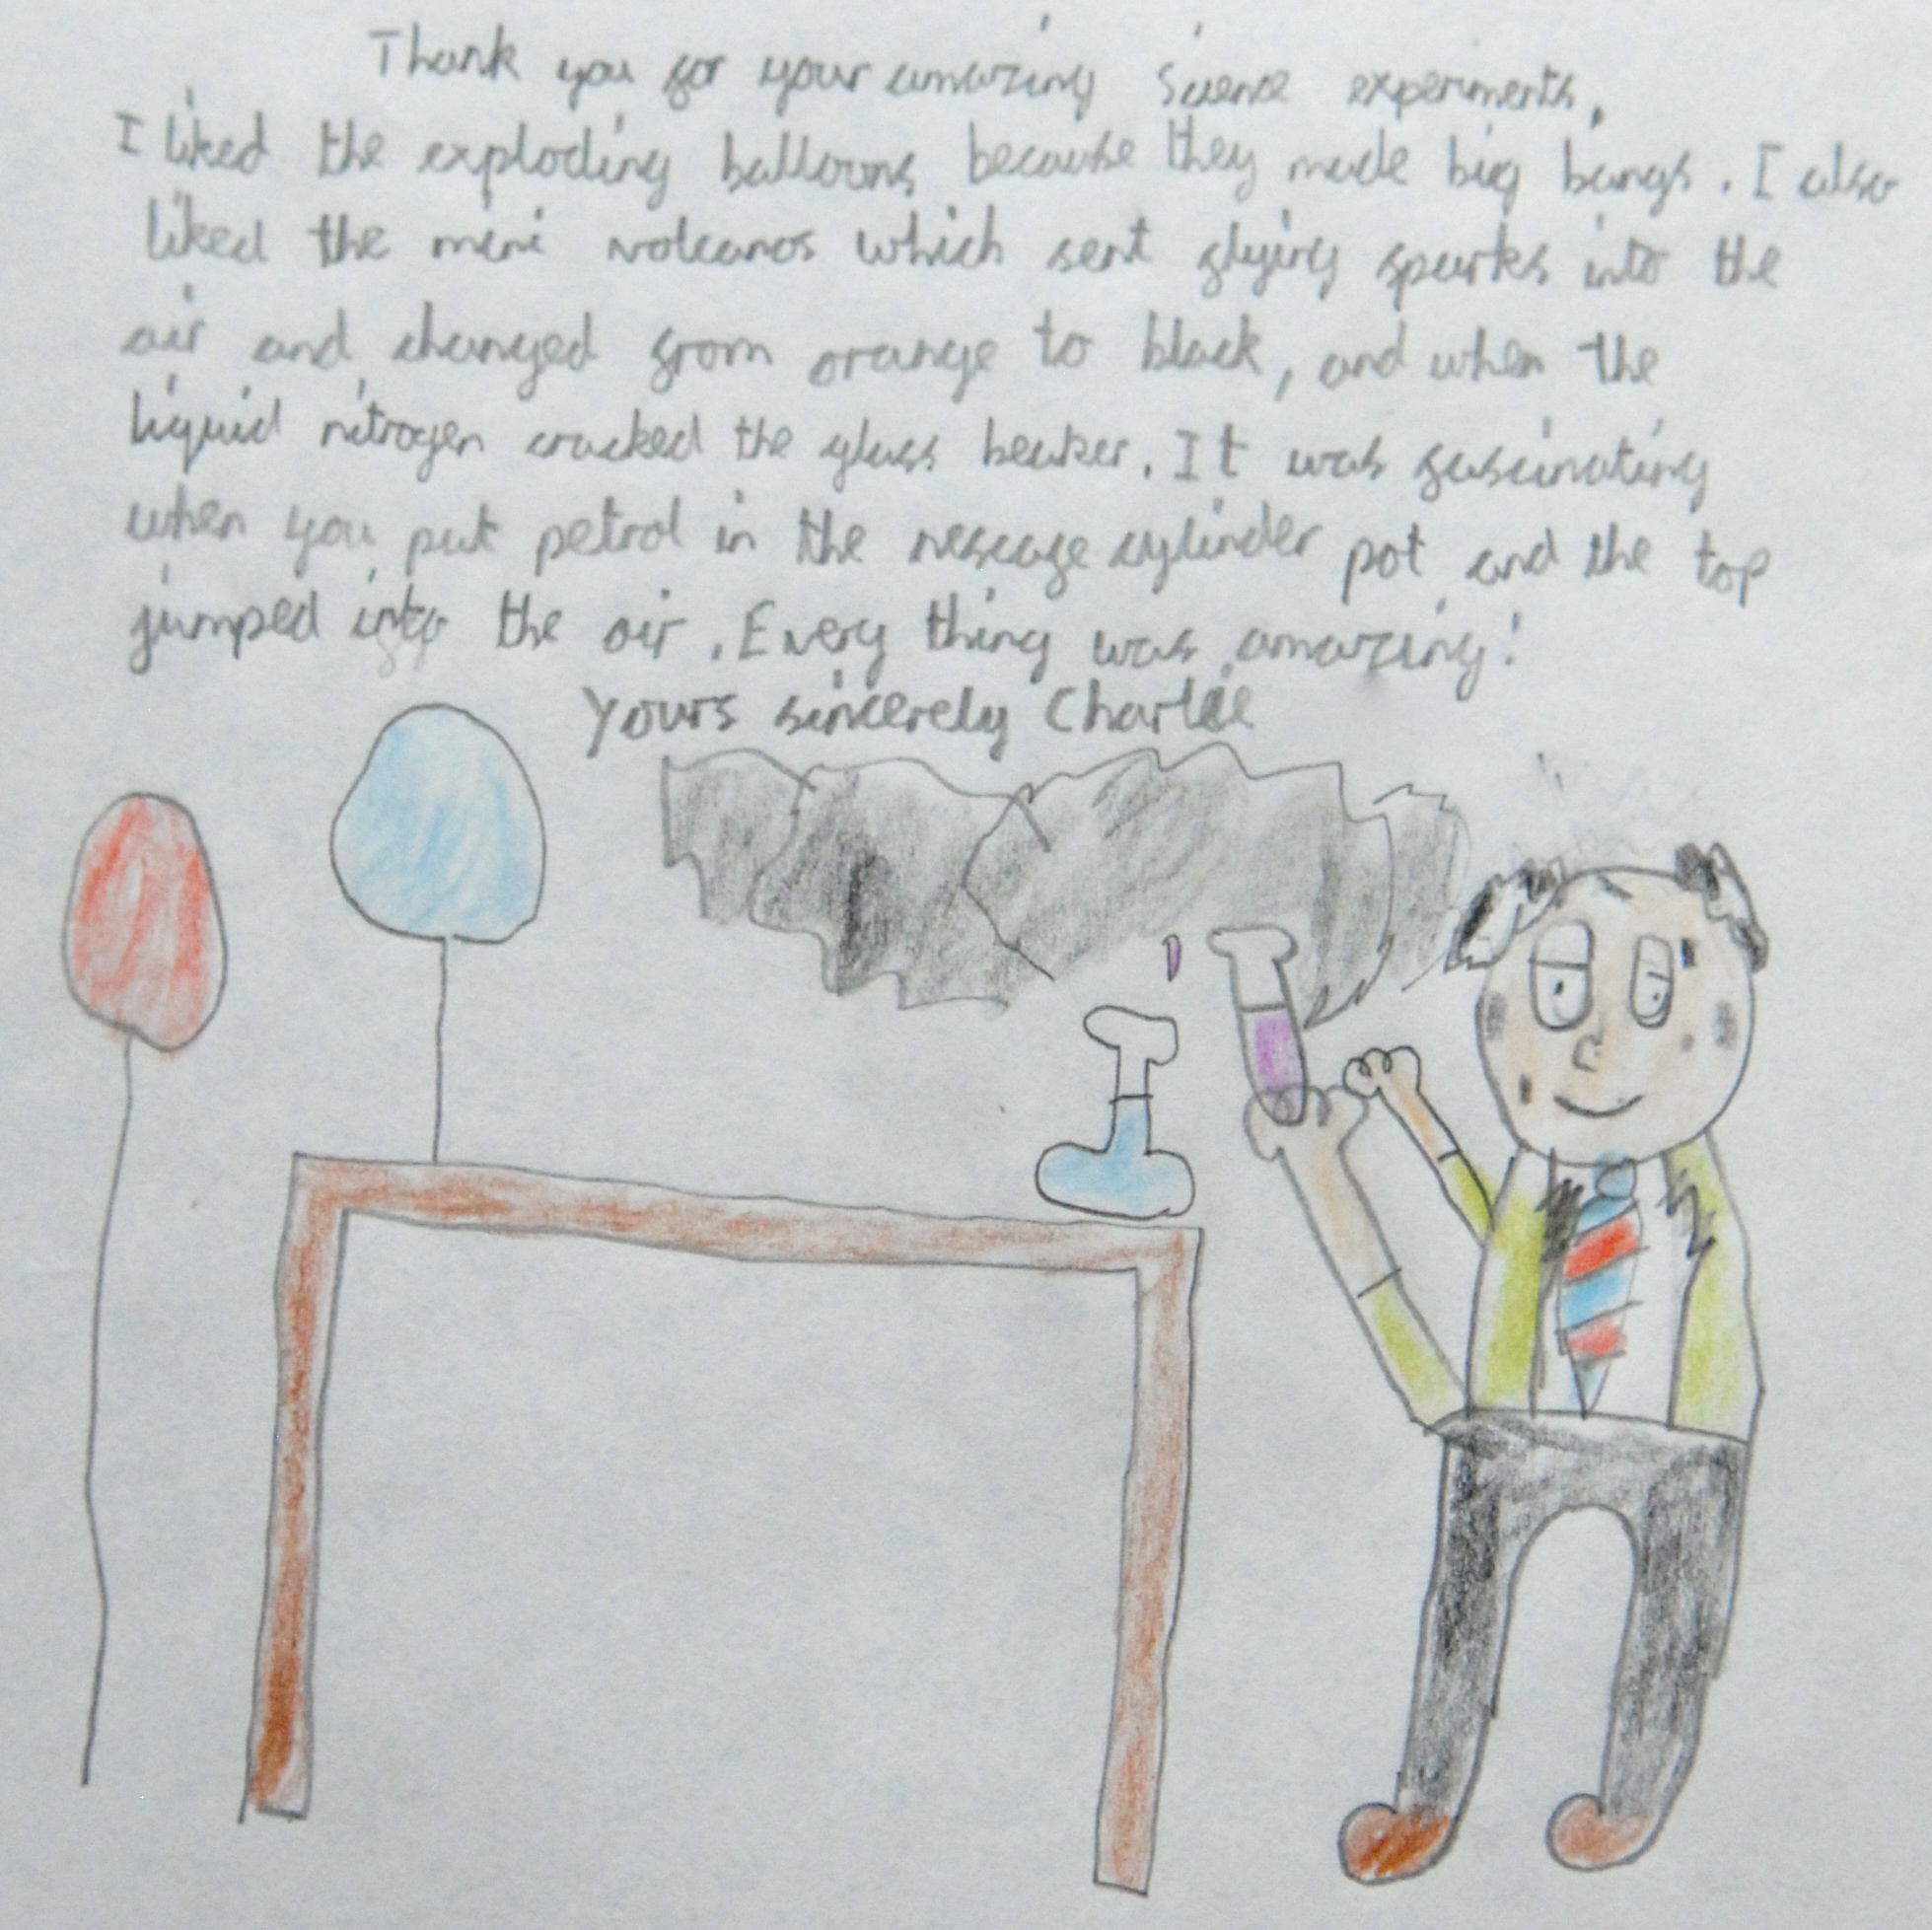 Thank you for your amazing Science experiments.
I liked the exploding balloons because they made big bangs. I also
liked the mini volcanos which sent flying sparks into the
air and changed from orange to black, and when the
liquid nitrogen cracked the glass beaker. It was fascinating
when you put petrol in the nescafe cylinder pot and the top
jumped into the air. Every thing was amazing!
Yours sincerely Charlie